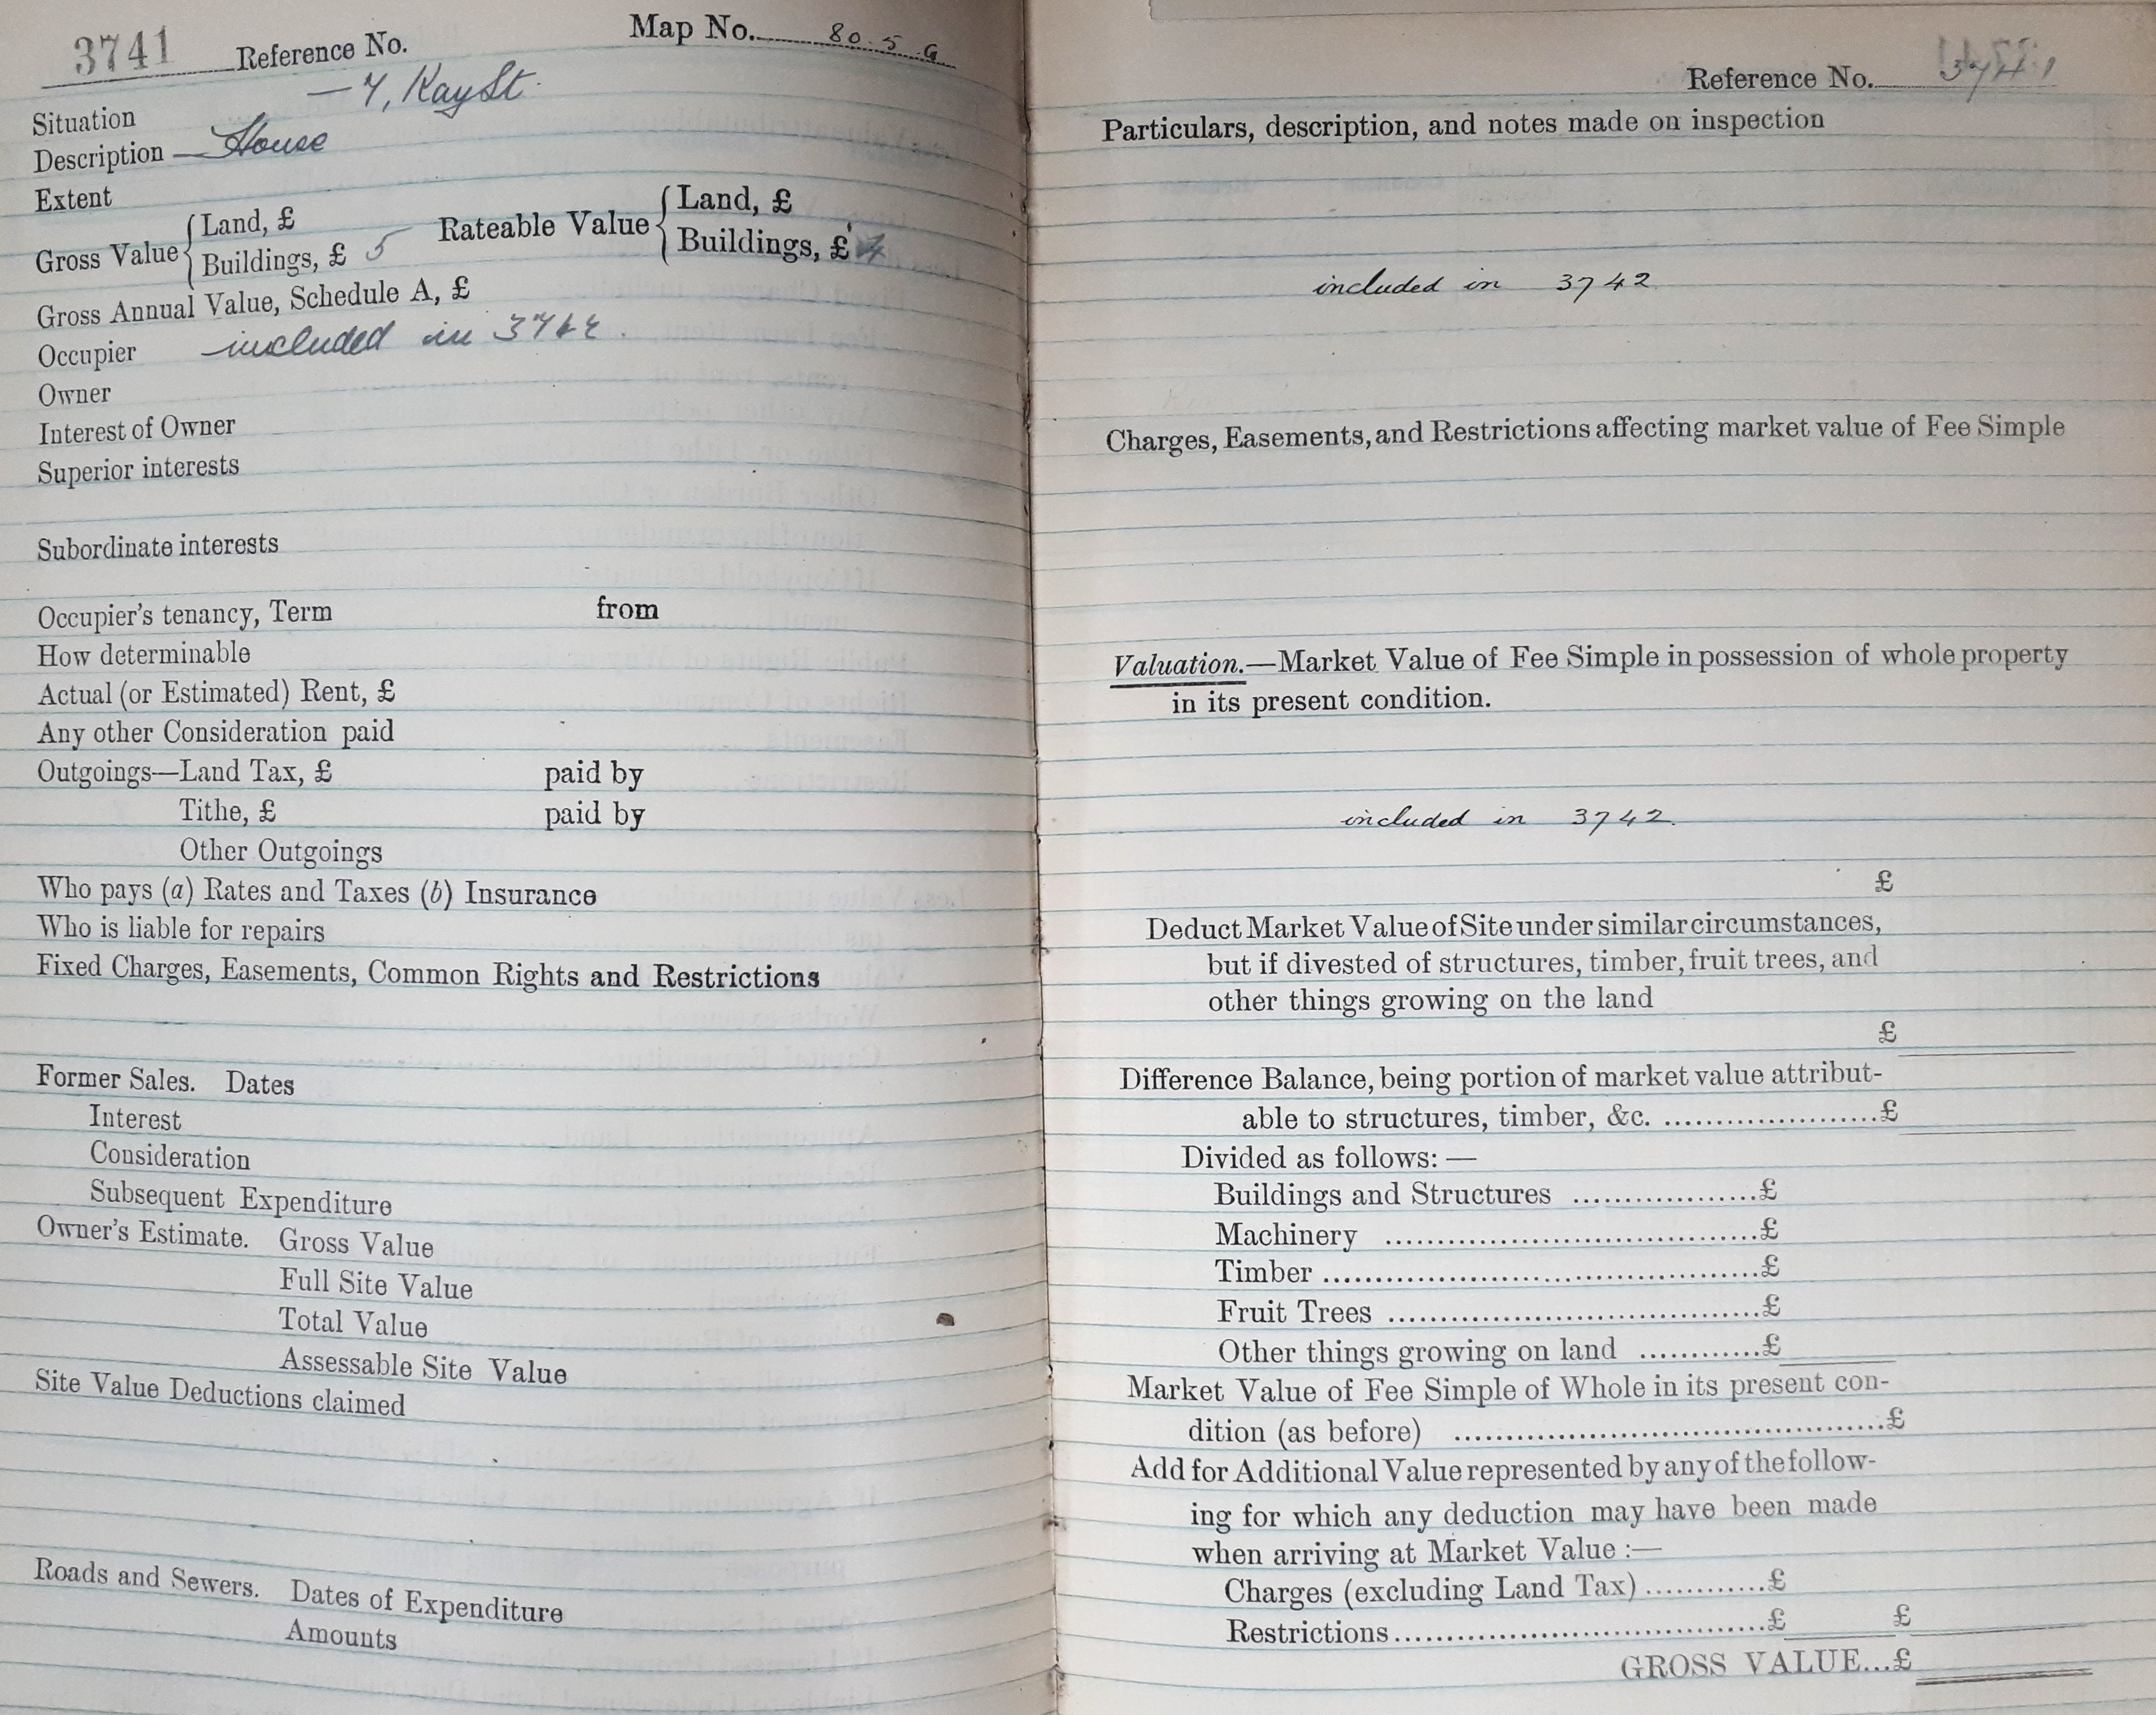 3741 Reference No. Map No. 80. 5. G
Situation — 7, Kay St.
Description — House
Extent
Gross Value { Land, £ Rateable Value { Land, £
Buildings, £ 5 Buildings, £ 4
Gross Annual Value, Schedule A, £
Occupier included in 3742.
Owner
Interest of Owner
Superior interests
Subordinate interests
Occupier's tenancy, Term from
How determinable
Actual (or Estimated) Rent, £
Any other Consideration paid
Outgoings—Land Tax, £ paid by
Tithe, £ paid by
Other Outgoings
Who pays (a) Rates and Taxes (b) Insurance
Who is liable for repairs
Fixed Charges, Easements, Common Rights and Restrictions
Former Sales. Dates
Interest
Consideration
Subsequent Expenditure
Owner's Estimate. Gross Value
Full Site Value
Total Value
Assessable Site Value
Site Value Deductions claimed
Roads and Sewers. Dates of Expenditure
Amounts
Reference No. 3741
Particulars, description, and notes made on inspection
included in 3742
Charges, Easements, and Restrictions affecting market value of Fee Simple
Valuation.—Market Value of Fee Simple in possession of whole property
in its present condition.
included in 3742.
£
Deduct Market Value of Site under similar circumstances,
but if divested of structures, timber, fruit trees, and
other things growing on the land
£
Difference Balance, being portion of market value attribut-
able to structures, timber, &c. ....................£
Divided as follows: —
Buildings and Structures ..................£
Machinery ....................................£
Timber ..........................................£
Fruit Trees ....................................£
Other things growing on land ............£
Market Value of Fee Simple of Whole in its present con-
dition (as before) ..........................................£
Add for Additional Value represented by any of the follow-
ing for which any deduction may have been made
when arriving at Market Value :—
Charges (excluding Land Tax) ............£
Restrictions....................................£ £
GROSS VALUE...£